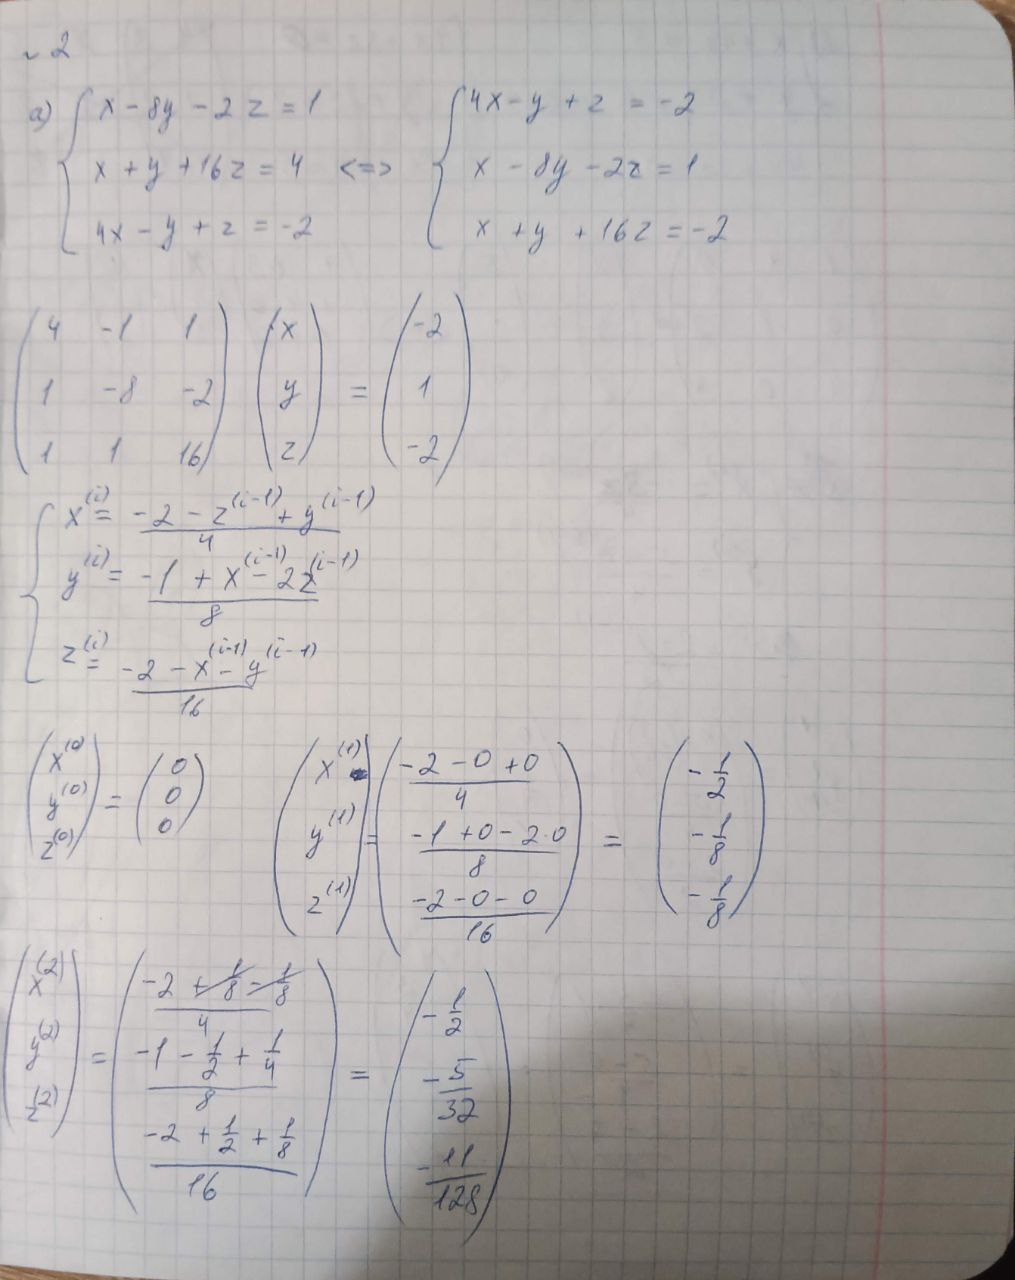 ~ 2
a) { x - 8y - 2z = 1
x + y + 16z = 4
4x - y + z = -2
<=> { 4x - y + z = -2
x - 8y - 2z = 1
x + y + 16z = -2
( 4 -1 1
1 -8 -2
1 1 16 )
( x
y
z )
=
( -2
1
-2 )
{ x^(i) = (-2 - z^(i-1) + y^(i-1)) / 4
y^(i) = (-1 + x^(i-1) - 2z^(i-1)) / 8
z^(i) = (-2 - x^(i-1) - y^(i-1)) / 16
( x^(0)
y^(0)
z^(0) )
=
( 0
0
0 )
( x^(1)
y^(1)
z^(1) )
=
( (-2 - 0 + 0) / 4
(-1 + 0 - 2·0) / 8
(-2 - 0 - 0) / 16 )
=
( -1/2
-1/8
-1/8 )
( x^(2)
y^(2)
z^(2) )
=
( (-2 + 1/8 - 1/8) / 4
(-1 - 1/2 + 1/4) / 8
(-2 + 1/2 + 1/8) / 16 )
=
( -1/2
-5/32
-11/128 )